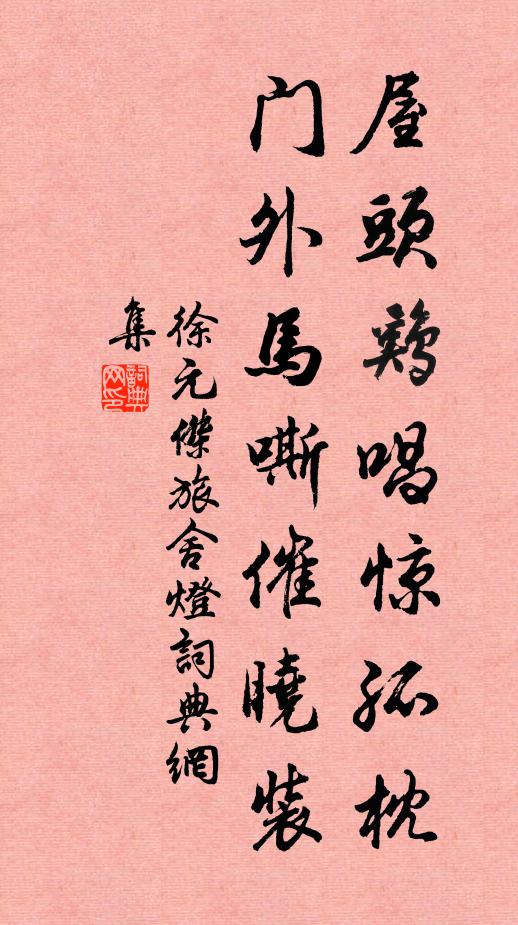 屋頭鷄唱惊孤枕
门外馬嘶催曉装
徐元傑旅舍燈詞典網
集
詞典网印